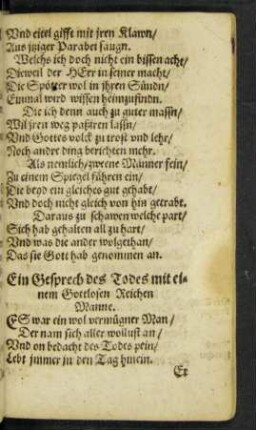 Vnd eitel gifft mit jren Klawn/
Aus jtziger Parabel saugn.
Welchs ich doch nicht ein bissen acht/
Dieweil der HErr in seiner macht/
Die Spötter wol in jhren Sündn/
Einmal wird wissen heimzufindn.
Die ich denn auch zu guter massn/
Wil jren weg passren lassn/
Vnd Gottes volck zu trost vnd lehr/
Noch ander ding berichten mehr.
Als nemlich/zweene Männer fein/
Zu einem Spiegel führen ein/
Die beyd ein gleiches gut gehabt/
Vnd doch nicht gleich von hin getrabt.
Daraus zu schawen welche part/
Sich hab gehalten all zu hart/
Vnd was die ander wolgethan/
Das sie Gott hab genommen an.
Ein Gesprech des Todes mit ei-
nem Gottlosen Reichen
Manne.
ES war ein wol vermügner Man/
Der nam sich aller wollust an/
Vnd on bedacht des Todes pein/
Lebt jmmer in den Tag hinein.
Er